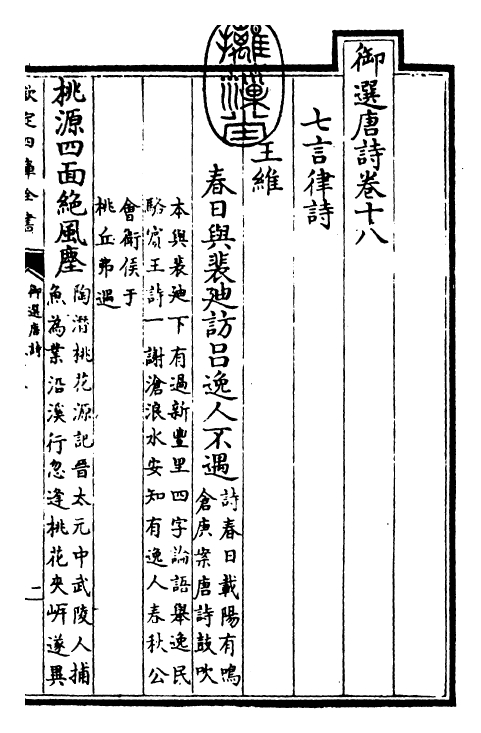 御選唐詩卷十八
七言律詩
王維
春日與裴廸訪吕逸人不遇
詩春日載陽有鳴
倉庚案唐詩鼓吹
本與裴廸下有過新豐里四字論語舉逸民
駱賓王詩一謝滄浪水安知有逸人春秋公
會衛侯于
桃丘弗遇
桃源四面絶風塵
陶潛桃花源記晉太元中武陵人捕
魚為業沿溪行忽逢桃花夾岸遂異
欽定四庫全書
御選唐詩